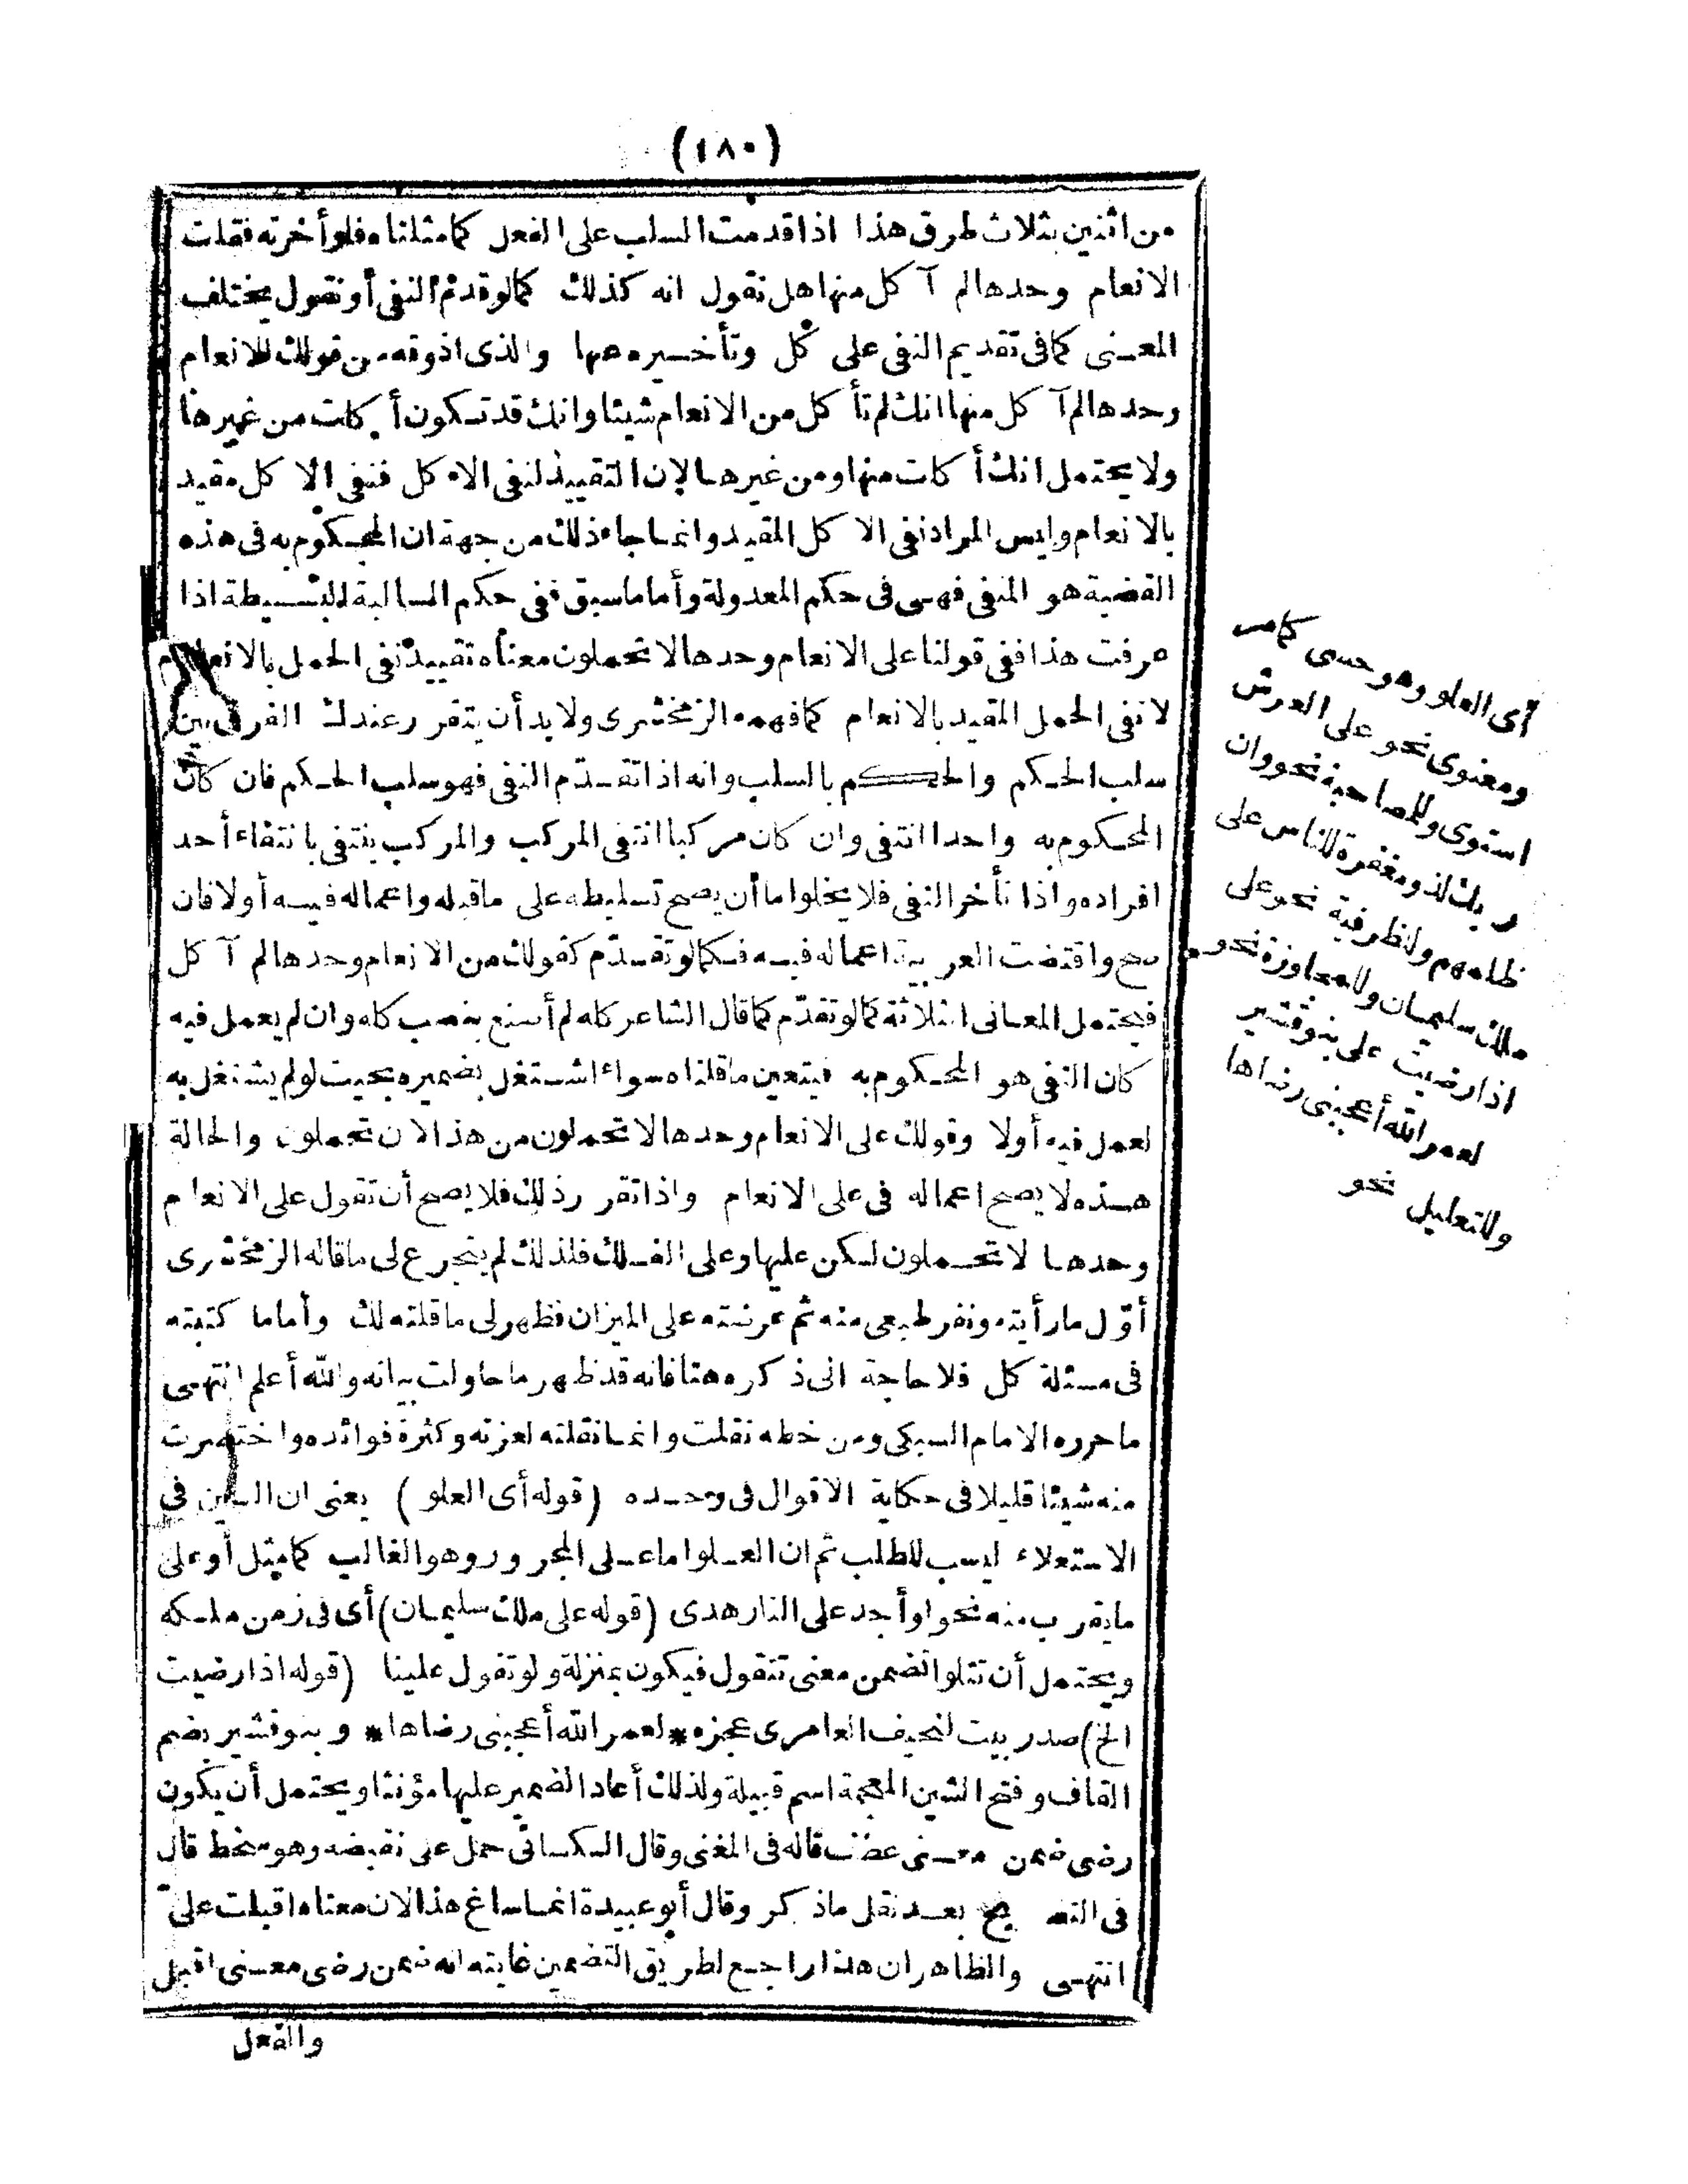 (١٨٠)
من اثنين بثلاث طرق هذا اذا قدمت السلب على الفعل كما مثلناه فلو أخرته فقلت
الانعام وحدها لم آكل منها هل نقول انه كذلك كما لو قدم النفى أو نقول يختلف
المعنى كما فى تقديم النفى على كل وتأخيره عنها والذى اذوقه من قولك الانعام
وحدها لم آكل منها انك لم تأكل من الانعام شيئا وانك قد تكون أكلت من غيرها
ولا يحتمل انك أكلت منها ومن غيرها لان التقييد لنفى الاكل فنفى الاكل مقيد
بالانعام وليس المراد نفى الاكل المقيد وانما جاء ذلك من جهة ان المحكوم به فى هذه
القضية هو المنفى فهى فى حكم المعدولة وأما ما سبق ففى حكم السالبة البسيطة اذا
عرفت هذا ففى قولنا على الانعام وحدها لا تحملون معناه تقييد نفى الحمل بالانعام
لا نفى الحمل المقيد بالانعام كما فهمه الزمخشرى ولا بد أن يتقرر عندك الفرق بين
سلب الحكم والحكم بالسلب وانه اذا تقدّم النفى فهو سلب الحكم فان كان
المحكوم به واحدا انتفى وان كان مركبا انتفى المركب والمركب ينتفى بانتفاء أحد
افراده واذا تأخر النفى فلا يخلو اما أن يصح تسليطه على ما قبله واعماله فيه أولا فان
صح واقتضت العربية اعماله فيه فكما لو تقدّم كقولك من الانعام وحدها لم آكل
فيحتمل المعانى الثلاثة كما لو تقدّم كما قال الشاعر كله لم أصنع بنصب كله وان لم يعمل فيه
كان النفى هو المحكوم به فيتعين ما قلناه سواء اشتغل بضميره بحيث لو لم يشتغل به
لعمل فيه أولا وقولك على الانعام وحدها لا تحملون من هذا لان تحملون والحالة
هذه لا يصح اعماله فى على الانعام واذا تقرر ذلك فلا يصح أن تقول على الانعام
وحدها لا تحملون لكن عليها وعلى الفلك فلذلك لم ينجر ع لى ما قاله الزمخشرى
أوّل ما رأيته ونفر طبعى منه ثم عرضته على الميزان فظهر لى ما قلته لك وأما ما كتبته
فى مسئلة كل فلا حاجة الى ذكره هنا فانه قد ظهر ما حاولت بيانه والله أعلم انتهى
ما حرره الامام السبكى ومن خطه نقلت وانما نقلته لعزته وكثرة فوائده واختصرت
منه شيئا قليلا فى حكاية الاقوال فى وحده (قوله أى العلو) يعنى ان السين فى
الاستعلاء ليست للطلب ثم ان العلو اما على المجرور وهو الغالب كما مثل أو على
ما يقرب منه نحو أو أجد على النار هدى (قوله على ملك سليمان) أى فى زمن ملكه
ويحتمل أن تتلوا تضمن معنى تتقول فيكون بمنزلة ولو تقول علينا (قوله اذا رضيت
الخ) صدر بيت لنحيف العامرى عجزه * لعمر الله أعجبنى رضاها * وبنو قشير بضم
القاف وفتح الشين المعجمة اسم قبيلة ولذلك أعاد الضمير عليها مؤنثا ويحتمل أن يكون
رضى ضمن معنى عطف قاله فى المغنى وقال الكسائى حمل على نقيضه وهو سخط قال
فى التصريح بعد نقل ما ذكر وقال أبو عبيدة انما ساغ هذا لان معناه اقبلت علىّ
انتهى والظاهر ان هذا راجع لطريق التضمين غايته انه ضمن رضى معنى اقبل
والفعل
أى العلو وهو حسى كما مر
ومعنوى نحو على العرش
استوى وللمصاحبة نحو وان
ربك لذو مغفرة للناس على
ظلمهم وللظرفية نحو على
ملك سليمان وللمجاوزة نحو
اذا رضيت على بنو قشير
لعمر الله أعجبنى رضاها
وللتعليل نحو